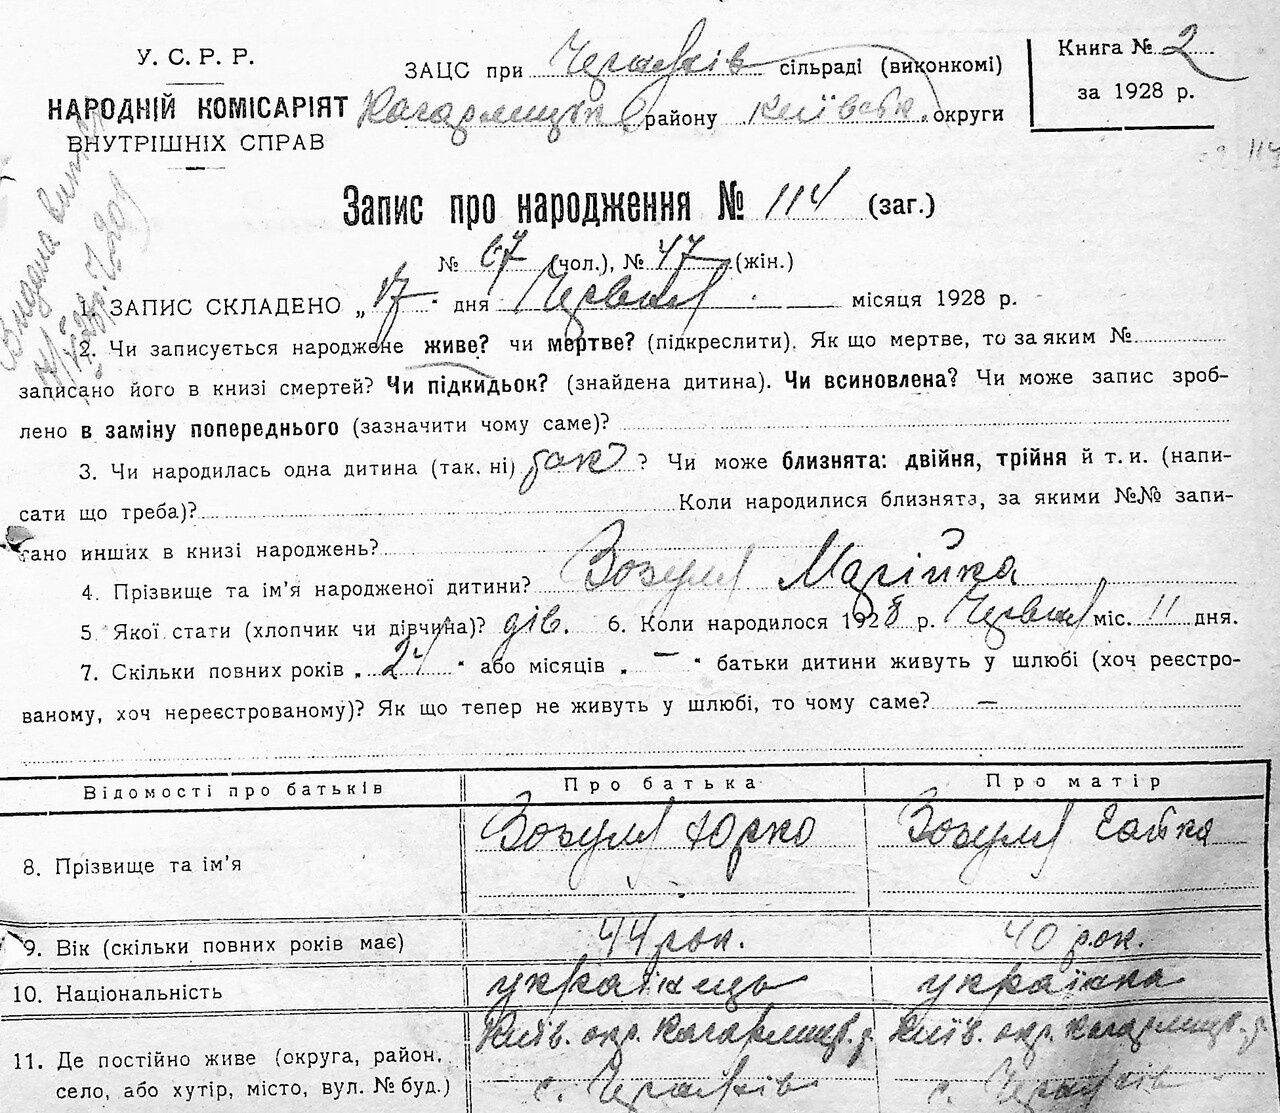 У. С. Р. Р.
НАРОДНІЙ КОМІСАРІЯТ
ВНУТРІШНІХ СПРАВ
ЗАЦС при Черняхів сільраді (виконкомі)
Кагарлицьк району Київськ. округи
Книга № 2
за 1928 р.
Запис про народження № 114 (заг.)
№ 67 (чол.), № 47 (жін.)
1. ЗАПИС СКЛАДЕНО „17" дня Червня місяця 1928 р.
2. Чи записується народжене живе? чи мертве? (підкреслити). Як що мертве, то за яким №
записано його в книзі смертей? Чи підкидьок? (знайдена дитина). Чи всиновлена? Чи може запис зроб-
лено в заміну попереднього (зазначити чому саме)?
3. Чи народилась одна дитина (так, ні) так? Чи може близнята: двійня, трійня й т. и. (напи-
сати що треба)? Коли народилися близнята, за якими №№ запи-
сано инших в книзі народжень?
4. Прізвище та ім'я народженої дитини? Зозуля Марійка
5. Якої стати (хлопчик чи дівчина)? дів. 6. Коли народилося 1928 р. Червня міс. 11 дня.
7. Скільки повних років „24" або місяців „—" батьки дитини живуть у шлюбі (хоч реєстро-
ваному, хоч нереєстрованому)? Як що тепер не живуть у шлюбі, то чому саме? —
Відомості про батьків Про батька Про матір
8. Прізвище та ім'я Зозуля Юрко Зозуля Гапка
9. Вік (скільки повних років має) 44 рок. 40 рок.
10. Національність українець українка
11. Де постійно живе (округа, район, Київ. окр. Кагарлицьк. р. Київ. окр. Кагарлицьк. р.
село, або хутір, місто, вул. № буд.) с. Черняхів с. Черняхів